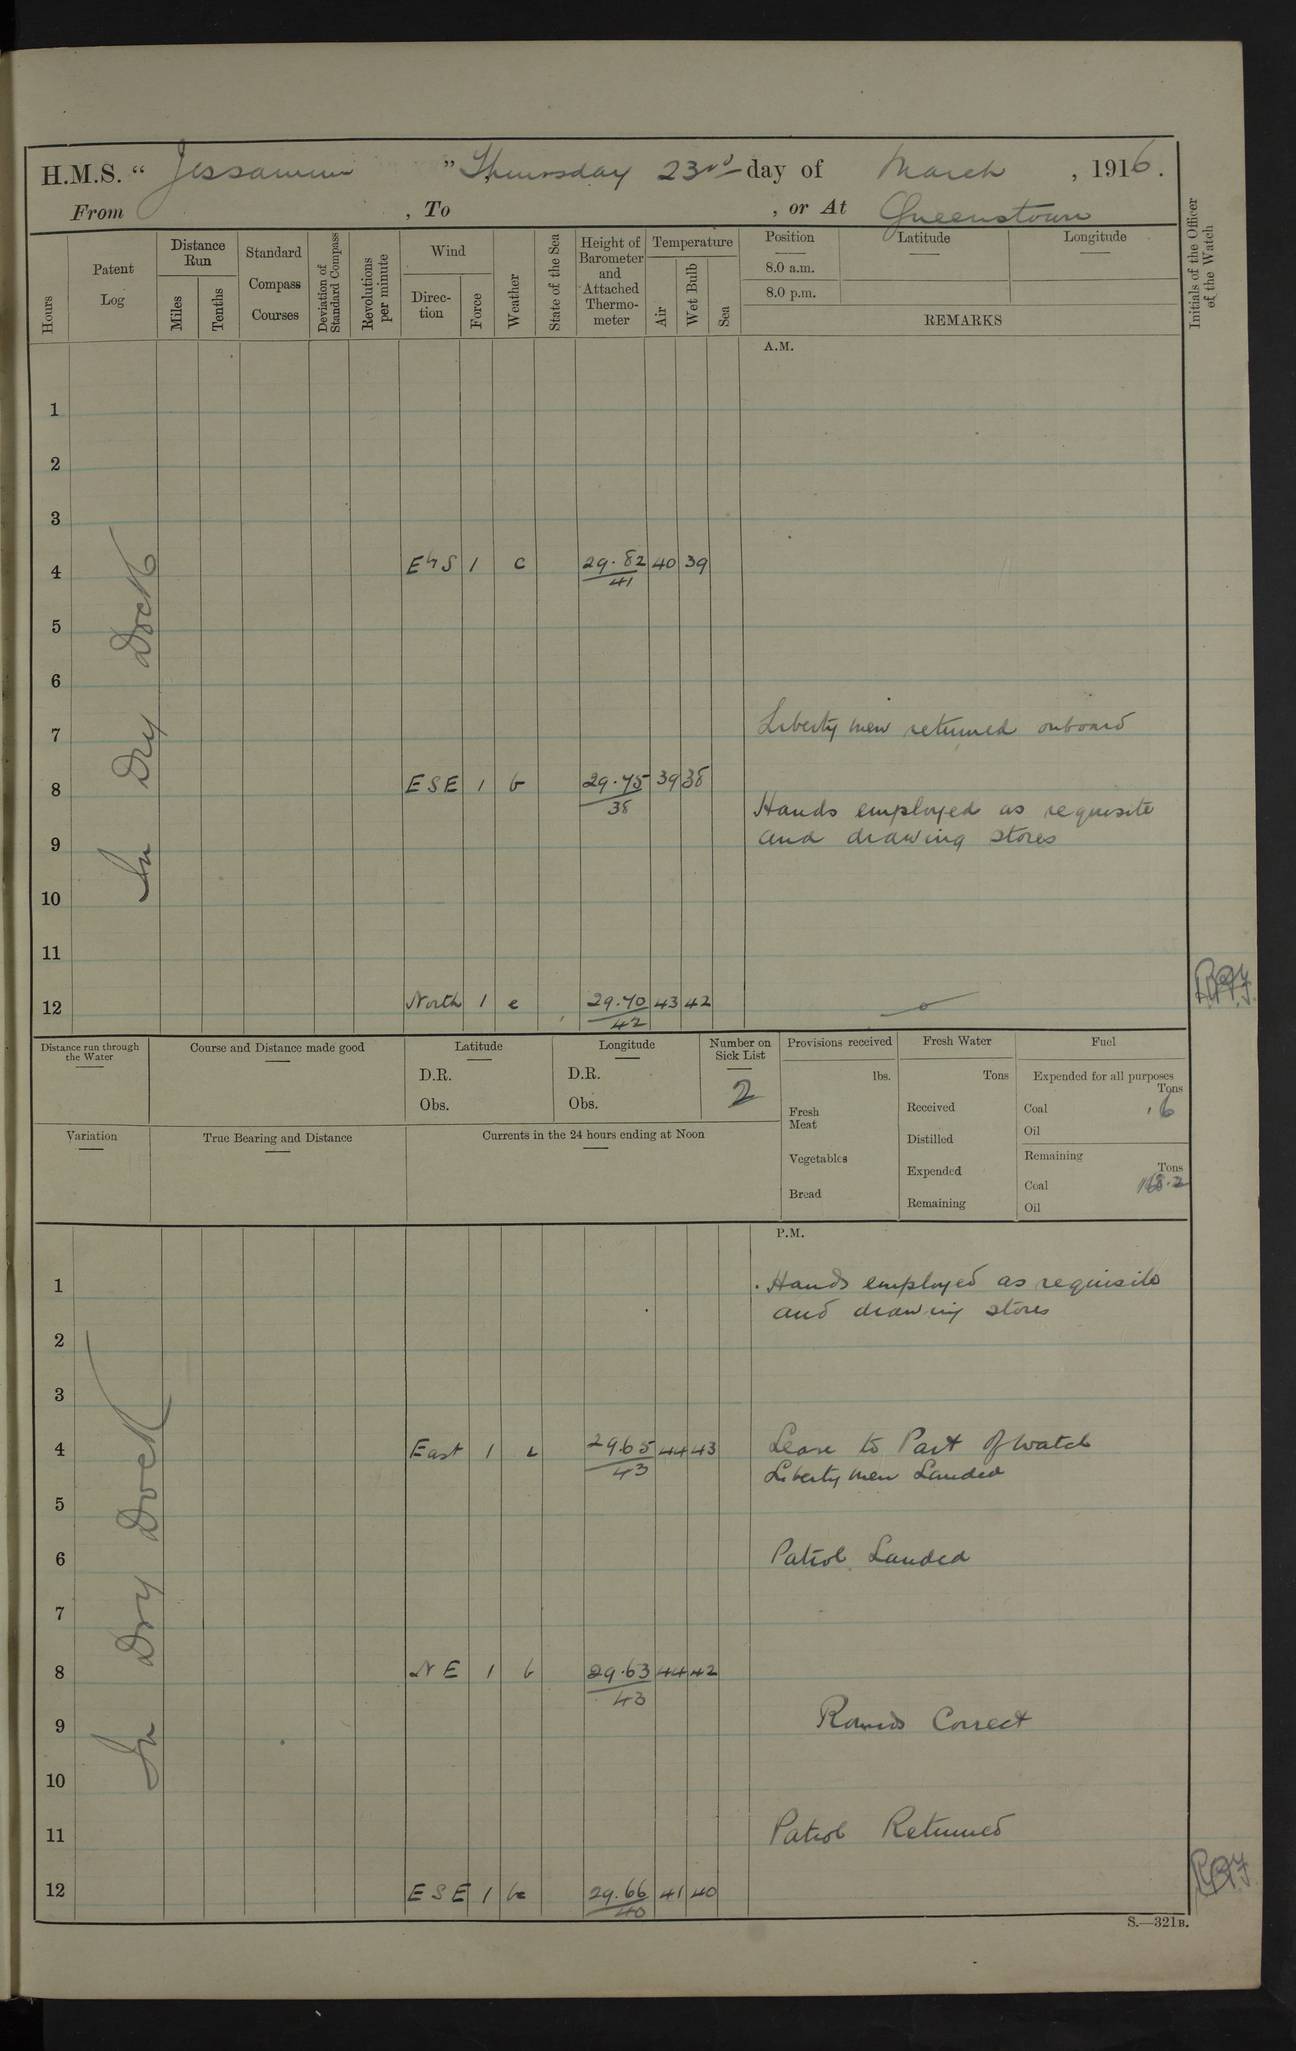 H.M.S. “ Jessamine ” Thursday 23rd day of March , 1916 .
From , To , or At Queenstown
Hours
Patent Log
Distance Run
Miles
Tenths
Standard Compass Courses
Deviation of Standard Compass
Revolutions per minute
Wind
Direc- tion
Force
Weather
State of the Sea
Height of Barometer and Attached Thermo- meter
Temperature
Air
Wet Bulb
Sea
Position
Latitude
Longitude
8.0 a.m.
8.0 p.m.
REMARKS
Initials of the Officer of the Watch
A.M.
In Dry Dock
1
2
3
4 EhS 1 c 29.82 40 39
41
5
6
Liberty men returned onboard
7
8 ESE 1 b 29.75 39 38
38
Hands employed as requisite
9 and drawing stores
10
11
12 North 1 c 29.70 43 42
42
Distance run through the Water
Course and Distance made good
Latitude
D.R.
Obs.
Longitude
D.R.
Obs.
Number on Sick List
2
Provisions received
lbs.
Fresh Meat
Vegetables
Bread
Fresh Water
Tons
Received
Distilled
Expended
Remaining
Fuel
Expended for all purposes
Tons
Coal .6
Oil
Remaining
Tons
Coal 168.2
Oil
Variation
True Bearing and Distance
Currents in the 24 hours ending at Noon
P.M.
In Dry Dock
1 Hands employed as requisite
and drawing stores
2
3
4 East 1 29.65 44 43 Leave to Part of Watch
43 Liberty men Landed
5
6 Patrol Landed
7
8 NE 1 b 29.63 44 42
43
9 Rounds Correct
10
11 Patrol Returned
12 ESE 1 bc 29.66 41 40
40
S.—321B.